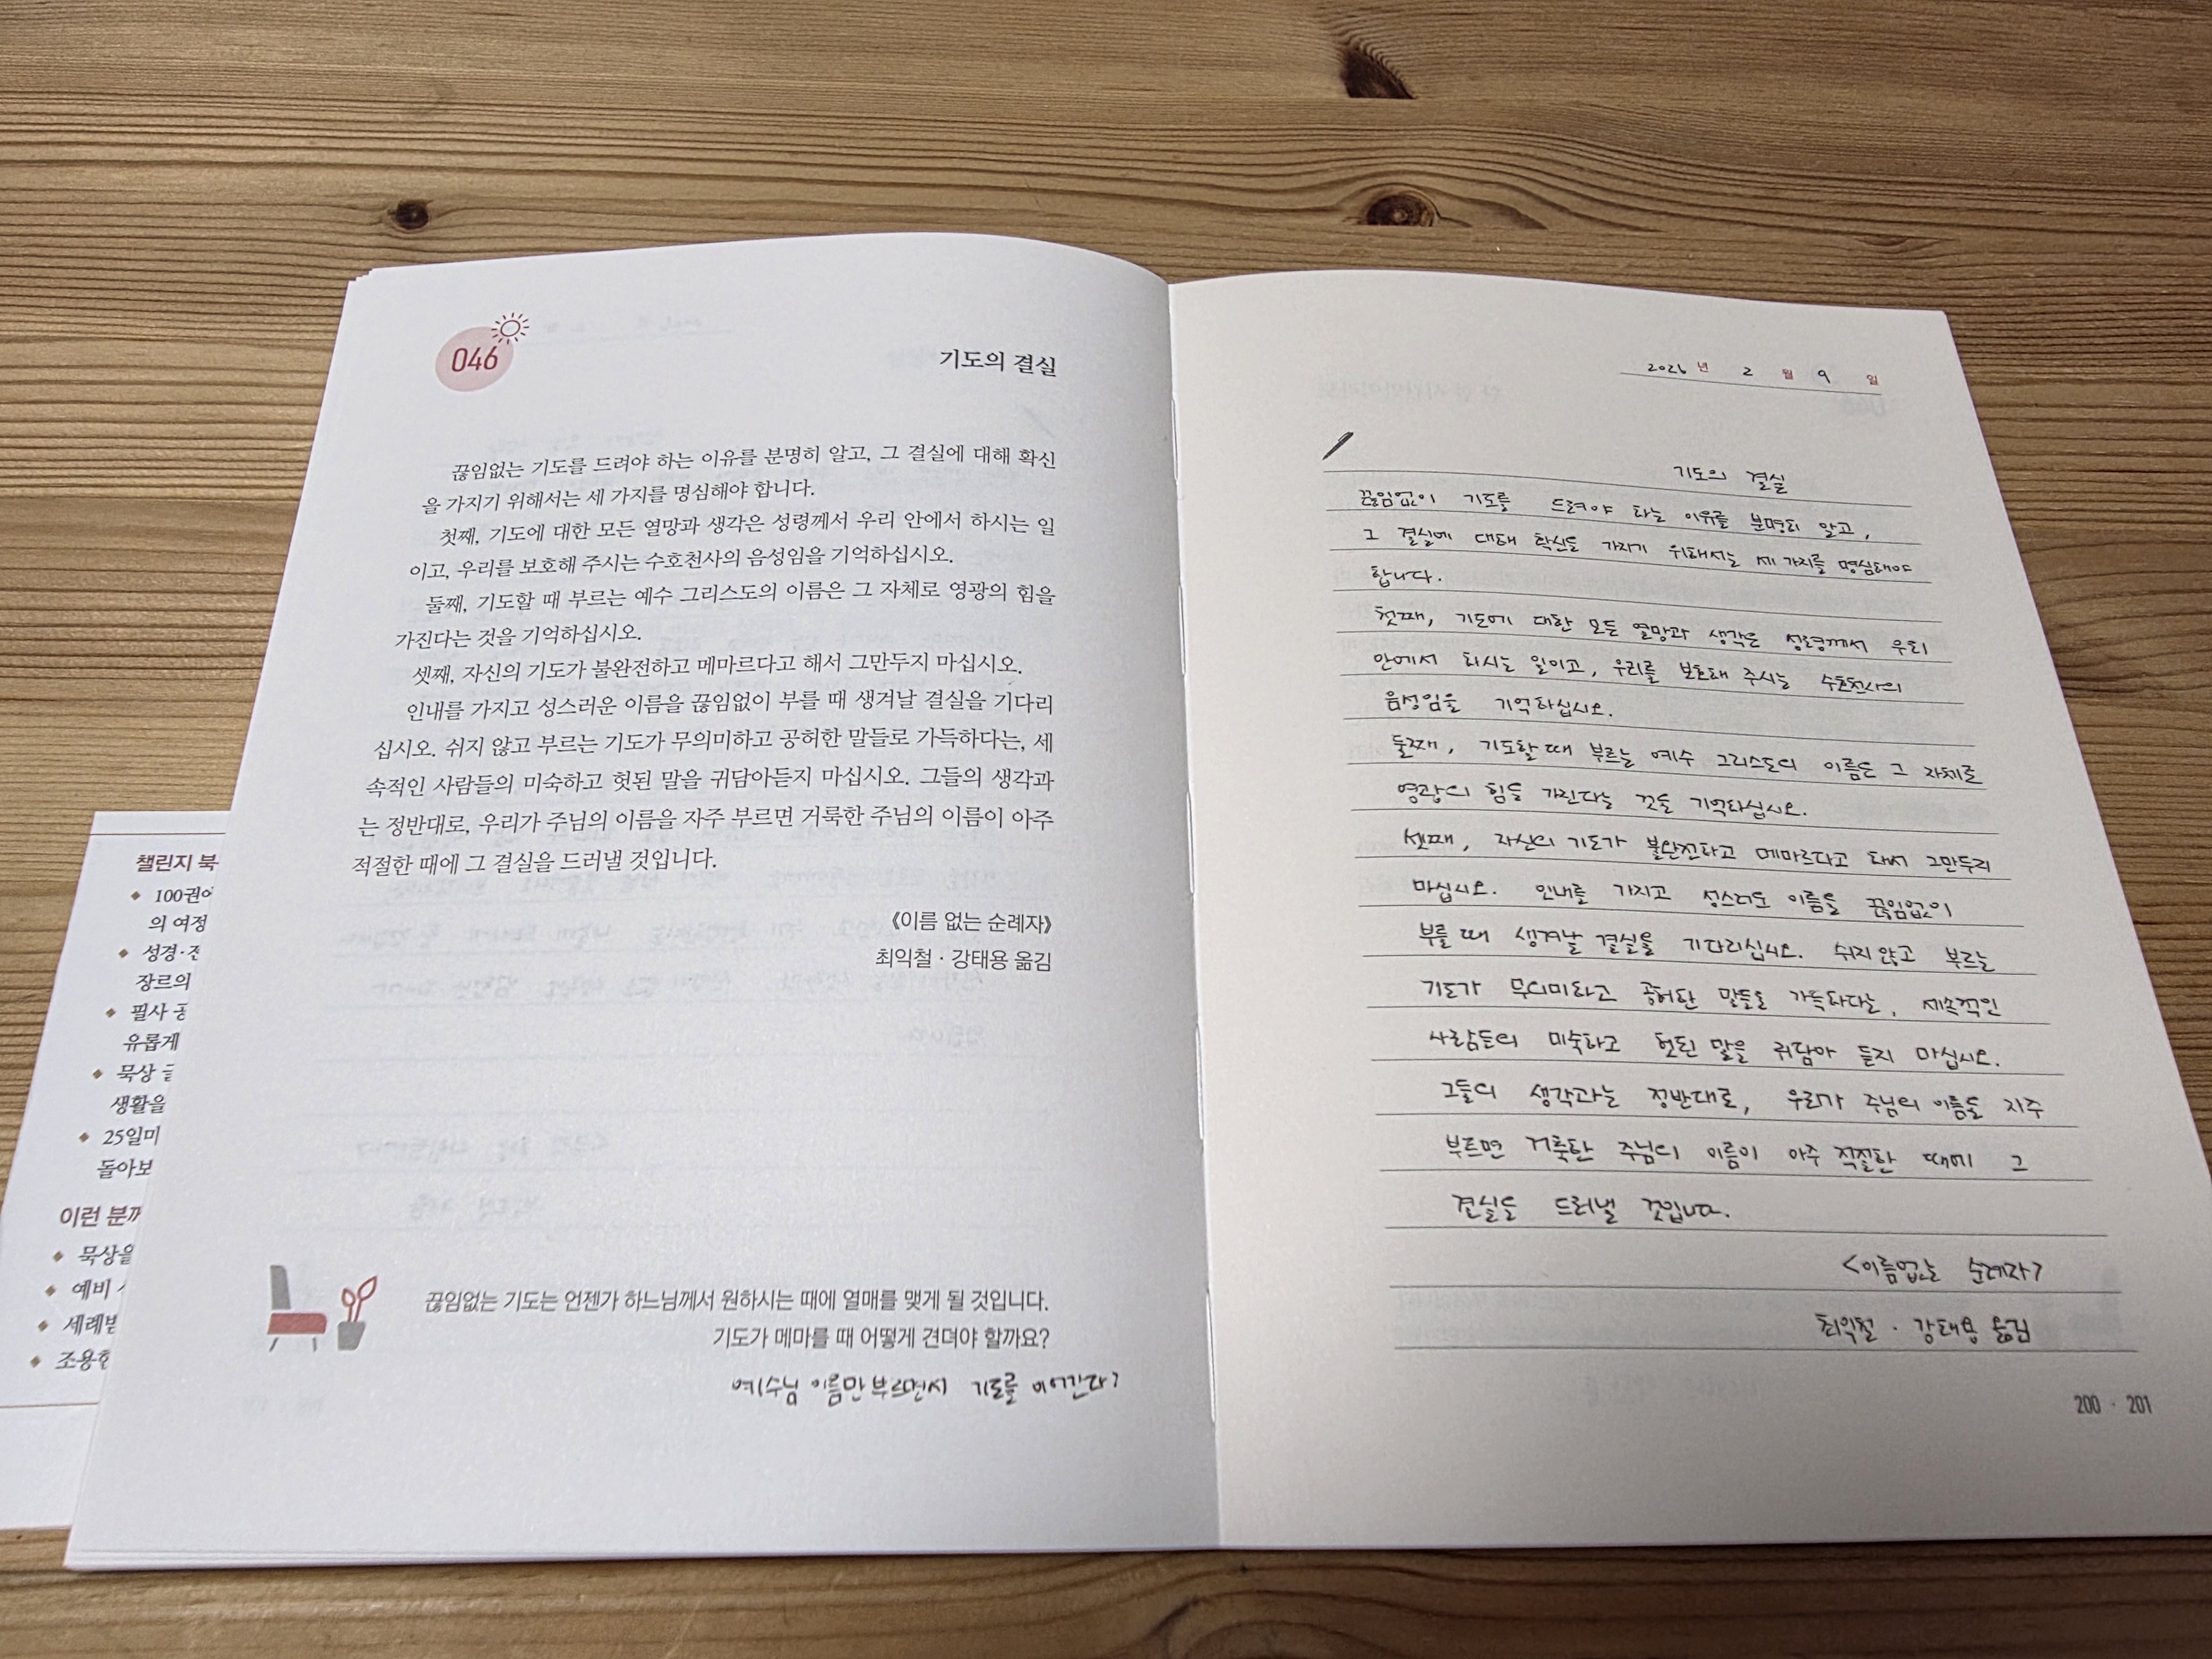 046
기도의 결실
끊임없는 기도를 드려야 하는 이유를 분명히 알고, 그 결실에 대해 확신
을 가지기 위해서는 세 가지를 명심해야 합니다.
첫째, 기도에 대한 모든 열망과 생각은 성령께서 우리 안에서 하시는 일
이고, 우리를 보호해 주시는 수호천사의 음성임을 기억하십시오.
둘째, 기도할 때 부르는 예수 그리스도의 이름은 그 자체로 영광의 힘을
가진다는 것을 기억하십시오.
셋째, 자신의 기도가 불완전하고 메마르다고 해서 그만두지 마십시오.
인내를 가지고 성스러운 이름을 끊임없이 부를 때 생겨날 결실을 기다리
십시오. 쉬지 않고 부르는 기도가 무의미하고 공허한 말들로 가득하다는, 세
속적인 사람들의 미숙하고 헛된 말을 귀담아듣지 마십시오. 그들의 생각과
는 정반대로, 우리가 주님의 이름을 자주 부르면 거룩한 주님의 이름이 아주
적절한 때에 그 결실을 드러낼 것입니다.
《이름 없는 순례자》
최익철 · 강태용 옮김
끊임없는 기도는 언젠가 하느님께서 원하시는 때에 열매를 맺게 될 것입니다.
기도가 메마를 때 어떻게 견뎌야 할까요?
예수님 이름만 부르면서 기도를 이어간다?
챌린지 북
100권
의 여정
성경·
장르의
필사
유롭게
묵상
생활을
25일미
돌아보
이런 분께
묵상을
예비
세례받
조용한
2026 년 2 월 9 일
기도의 결실
끊임없이 기도를 드려야 하는 이유를 분명히 알고,
그 결실에 대해 확신을 가지기 위해서는 세 가지를 명심해야
합니다.
첫째, 기도에 대한 모든 열망과 생각은 성령께서 우리
안에서 하시는 일이고, 우리를 보호해 주시는 수호천사의
음성임을 기억하십시오.
둘째, 기도할 때 부르는 예수 그리스도의 이름은 그 자체로
영광의 힘을 가진다는 것을 기억하십시오.
셋째, 자신의 기도가 불완전하고 메마르다고 해서 그만두지
마십시오. 인내를 가지고 성스러운 이름을 끊임없이
부를 때 생겨날 결실을 기다리십시오. 쉬지 않고 부르는
기도가 무의미하고 공허한 말들로 가득하다는, 세속적인
사람들의 미숙하고 헛된 말을 귀담아 듣지 마십시오.
그들의 생각과는 정반대로, 우리가 주님의 이름을 자주
부르면 거룩한 주님의 이름이 아주 적절한 때에 그
결실을 드러낼 것입니다.
<이름없는 순례자>
최익철 · 강태용 옮김
200 · 201